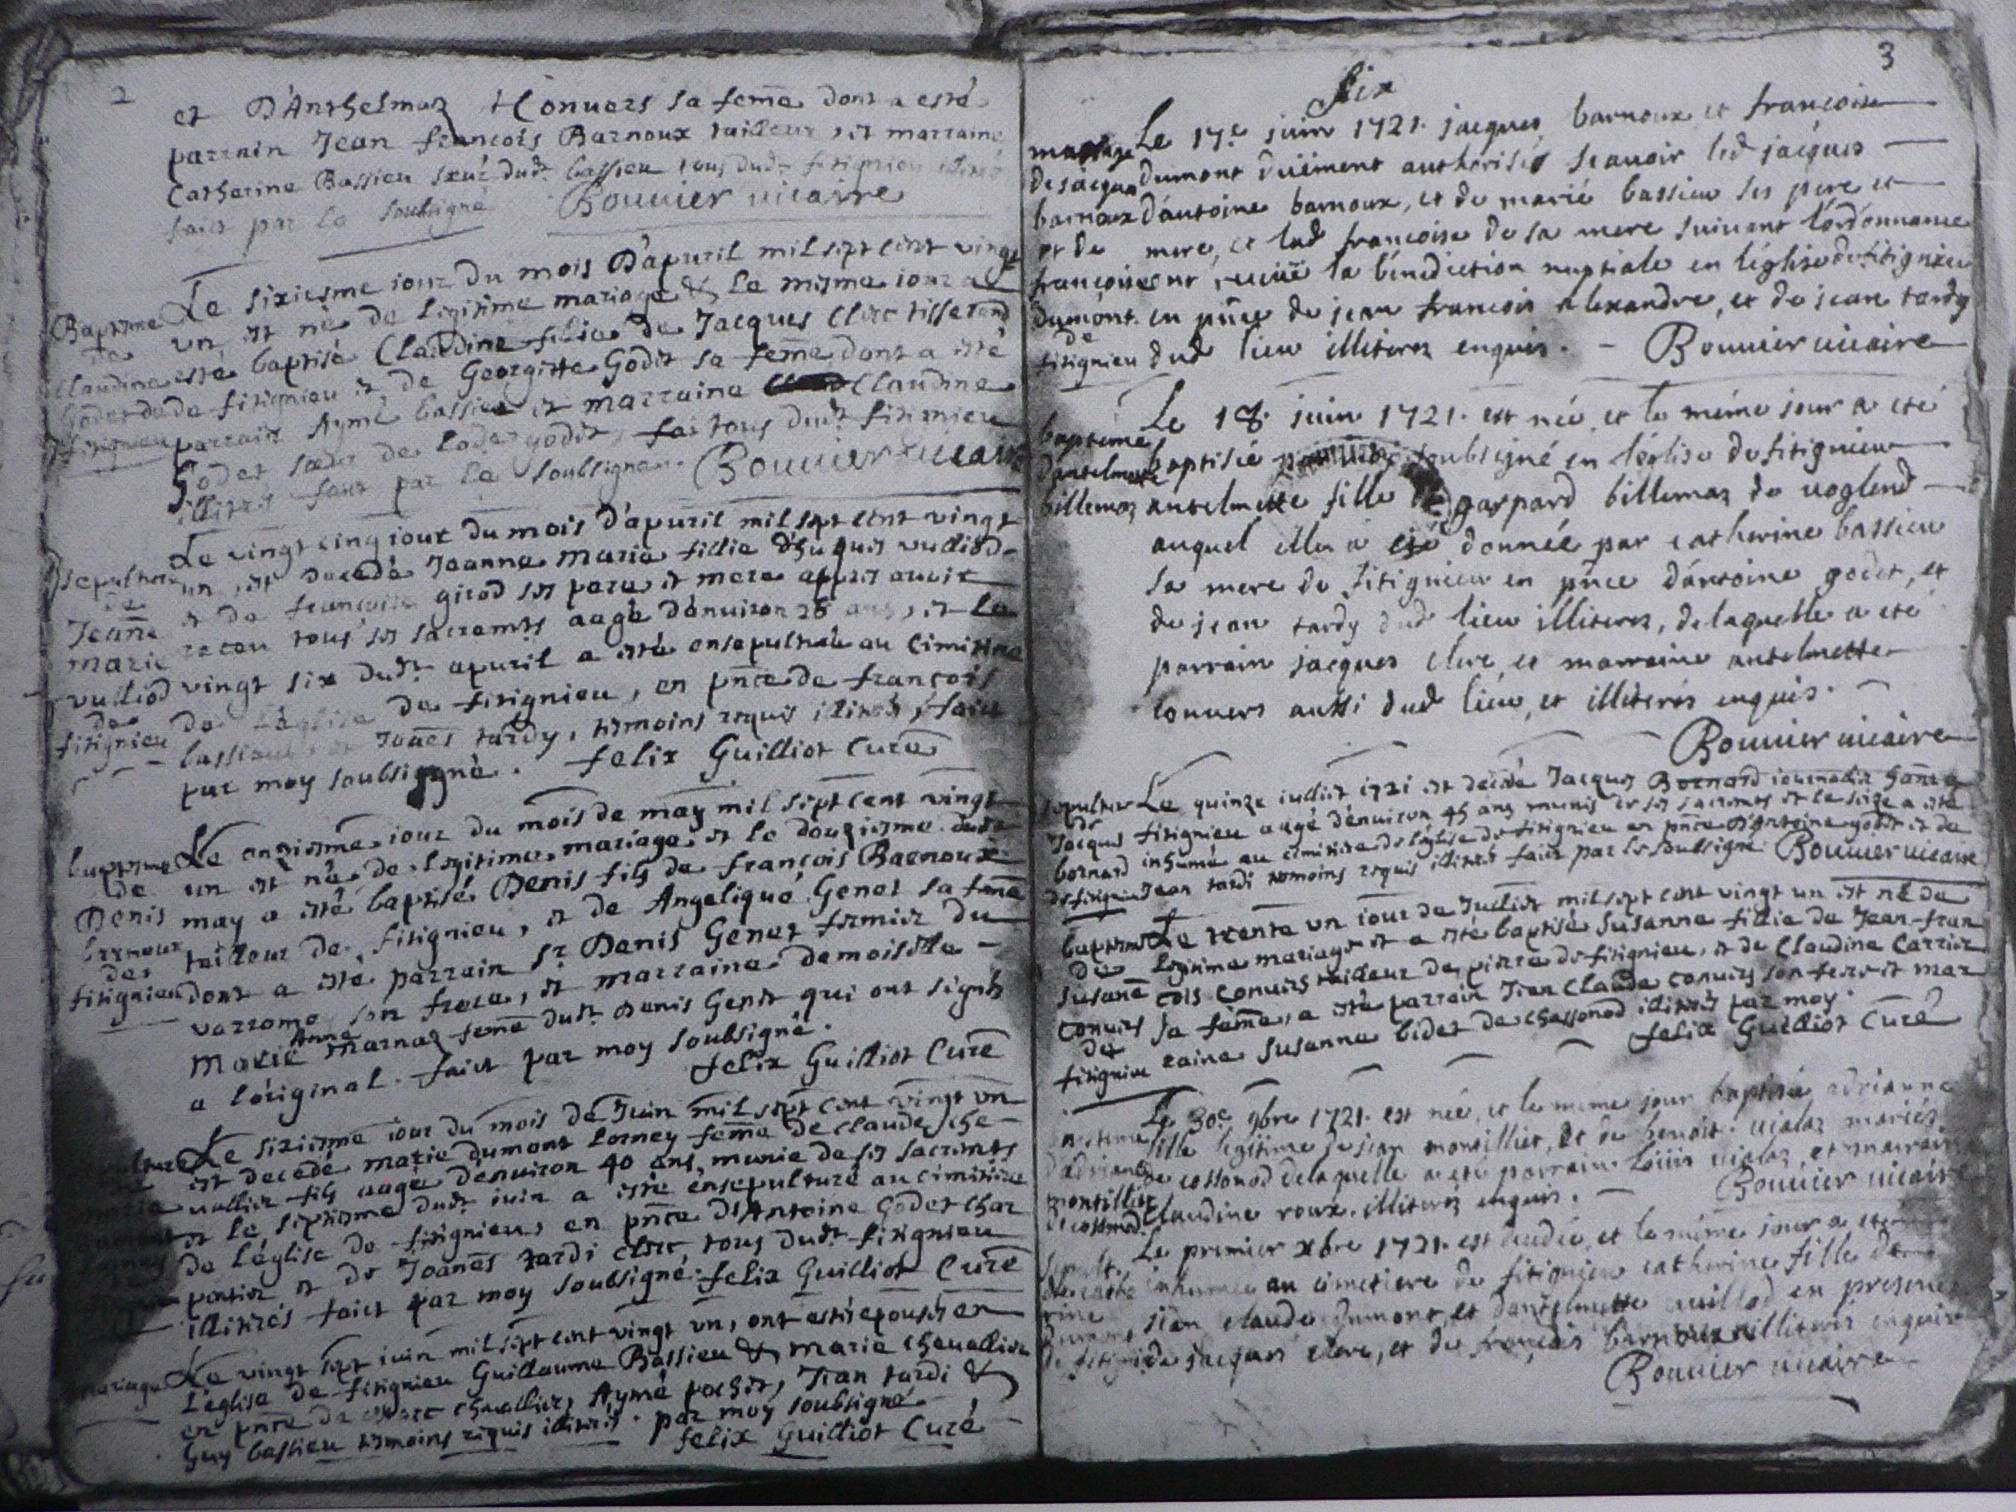 2
et D'Anthelmaz Convers sa feme dont a esté
parrain Jean françois Barnoux tailleur, et marraine
Catherine Bassieu sœur dudt bassieu tous dudt fitignieu
faict par le soubsigné Bouvier vicaire
Le sixiesme iour du mois D'apuril mil sept cent vingt
Baptesme un est né de legitime mariage & le mesme iour a
de Claudine esté baptisé Claudine fillie de Jacques Clerc tisserand
de fitignieu et de Georgitte Godet sa feme dont a esté
parrain Aymé bassieu et marraine Claudine
Godet sœur de godet tous dudt fitignieu
illitrés faict par le soubsigné. Bouvier vicaire
Le vingt cinq iour du mois d'apuril mil sept cent vingt
sepulture un est decedé Jeanne Marie fillie vulliod
de Jeane et de françoise girod ses pere et mere apprès avoir
marie receu tous ses sacremts aagé d'environ 28 ans, et le
vulliod vingt six dudt apuril a esté ensepulturé au cimitire
de fitignieu de l'eglise de fitignieu, en pnce de françois
bassieu et Joanes tardy, temoins requis illitrés, faict
par moy soubsigné. felix Guilliot Curé
baptesme Le onziesme iour du mois de may mil sept cent vingt
de un est né de legitime mariage et le douziesme dudt
Denis may a esté baptisé Denis fils de françois Barnoux
barnoux tailleur de fitignieu, et de Angelique Genet sa feme
de fitignieu dont a esté parrain sr Denis Genet fermier du
varromey son frere, et marraine demoiselle
Marie Anne Marnaz feme dudt Denis Genet qui ont signés
a l'original. faict par moy soubsigné.
felix Guilliot Curé
Le sixiesme iour du mois de Juin mil sept cent vingt un
est decedé marie dumont Lorney feme de claude che
vallier aagée d'environ 40 ans, munie de ses sacremts
et le septiesme dudt iuin a esté ensepulturé au cimitire
de l'église de fitignieu, en pnce d'Antoine Godet char
pentier et de Joanes tardi clerc, tous dudt fitignieu
illitrés faict par moy soubsigné. felix Guilliot Curé
mariage Le vingt sept iuin mil sept cent vingt un, ont esté epousés en
l'église de fitignieu Guillaume Bassieu & marie chevallier
en pnce de chevallier, Aymé pochet, Jean tardi &
Guy bassieu temoins requis illitrés. par moy soubsigné
felix Guilliot Curé
3
Six
mariage Le 17e juin 1721. jacques barnoux et françoise
de jacques dumont duëment authorisés scavoir led jacques
barnoux d'antoine barnoux, et de marie bassieu ses pere et
et de mere, et lad françoise de sa mere suivant l'ordonnance
françoise ont receüe la bénediction nuptiale en léglise de fitignieu
dumont en pnce de jean francois alexandre, et de jean tardy
de fitignieu dud lieu illiterez enquis. - Bouvier vicaire
Le 18. juin 1721. est née, et le même jour a eté
baptême baptisée soubsigné en léglise de fitignieu
d'antelmette
billemaz antelmette fille de gaspard billemaz de voglend
auquel elle a eté donnée par catherine bassieu
sa mere de fitignieu en pnce d'antoine godet, et
de jean tardy dud lieu illiterez, de laquelle a eté
parrain jacques clerc, et marraine antelmette
convers aussi dud lieu, et illiterés enquis.
Bouvier vicaire
sepulture Le quinze iulliet 1721 est decedé Jacques Bernard
de Jacques fitignieu aagé d'environ 45 ans munis de ses sacremts et le seize a esté
bernard inhumé au cimitire de l'eglise de fitignieu en pnce d'Antoine godet et de
de fitignieu Jean tardi temoins requis illitrés faict par le soubsigné Bouvier vicaire
baptesme Le trente un iour de Julliet mil sept cent vingt un est né de
de legitime mariage et a esté baptisé Susanne fillie de Jean-fran
susane cois Convers tailleur de pierre de fitignieu, et de Claudine Carrier
convers sa feme, a esté parrain Jean Claude convers son frere et mar
de fitignieu raine Susanne bidet de chassonod illitrés par moy.
felix Guilliot Curé
Le 30e 9bre 1721. est née, et le meme jour baptisée adrianne
baptême fille legitime de jean montillier, et de benoite vialaz mariés
d'adrianne de cossonod delaquelle a eté parrain loüis vialaz, et marraine
montillier claudine roux. illiterez enquis. - Bouvier vicaire
de cossonod
Le premier xbre 1721. est decedée, et le même jour a eté
sepult. inhumée au cimetiere de fitignieu catherine fille de
de cathe
rine jean claude dumont, et d'antelmette vuillod en presence
dumont
de fitig. de jacques clerc, et de françois barnoux illiterés enquis
Bouvier vicaire